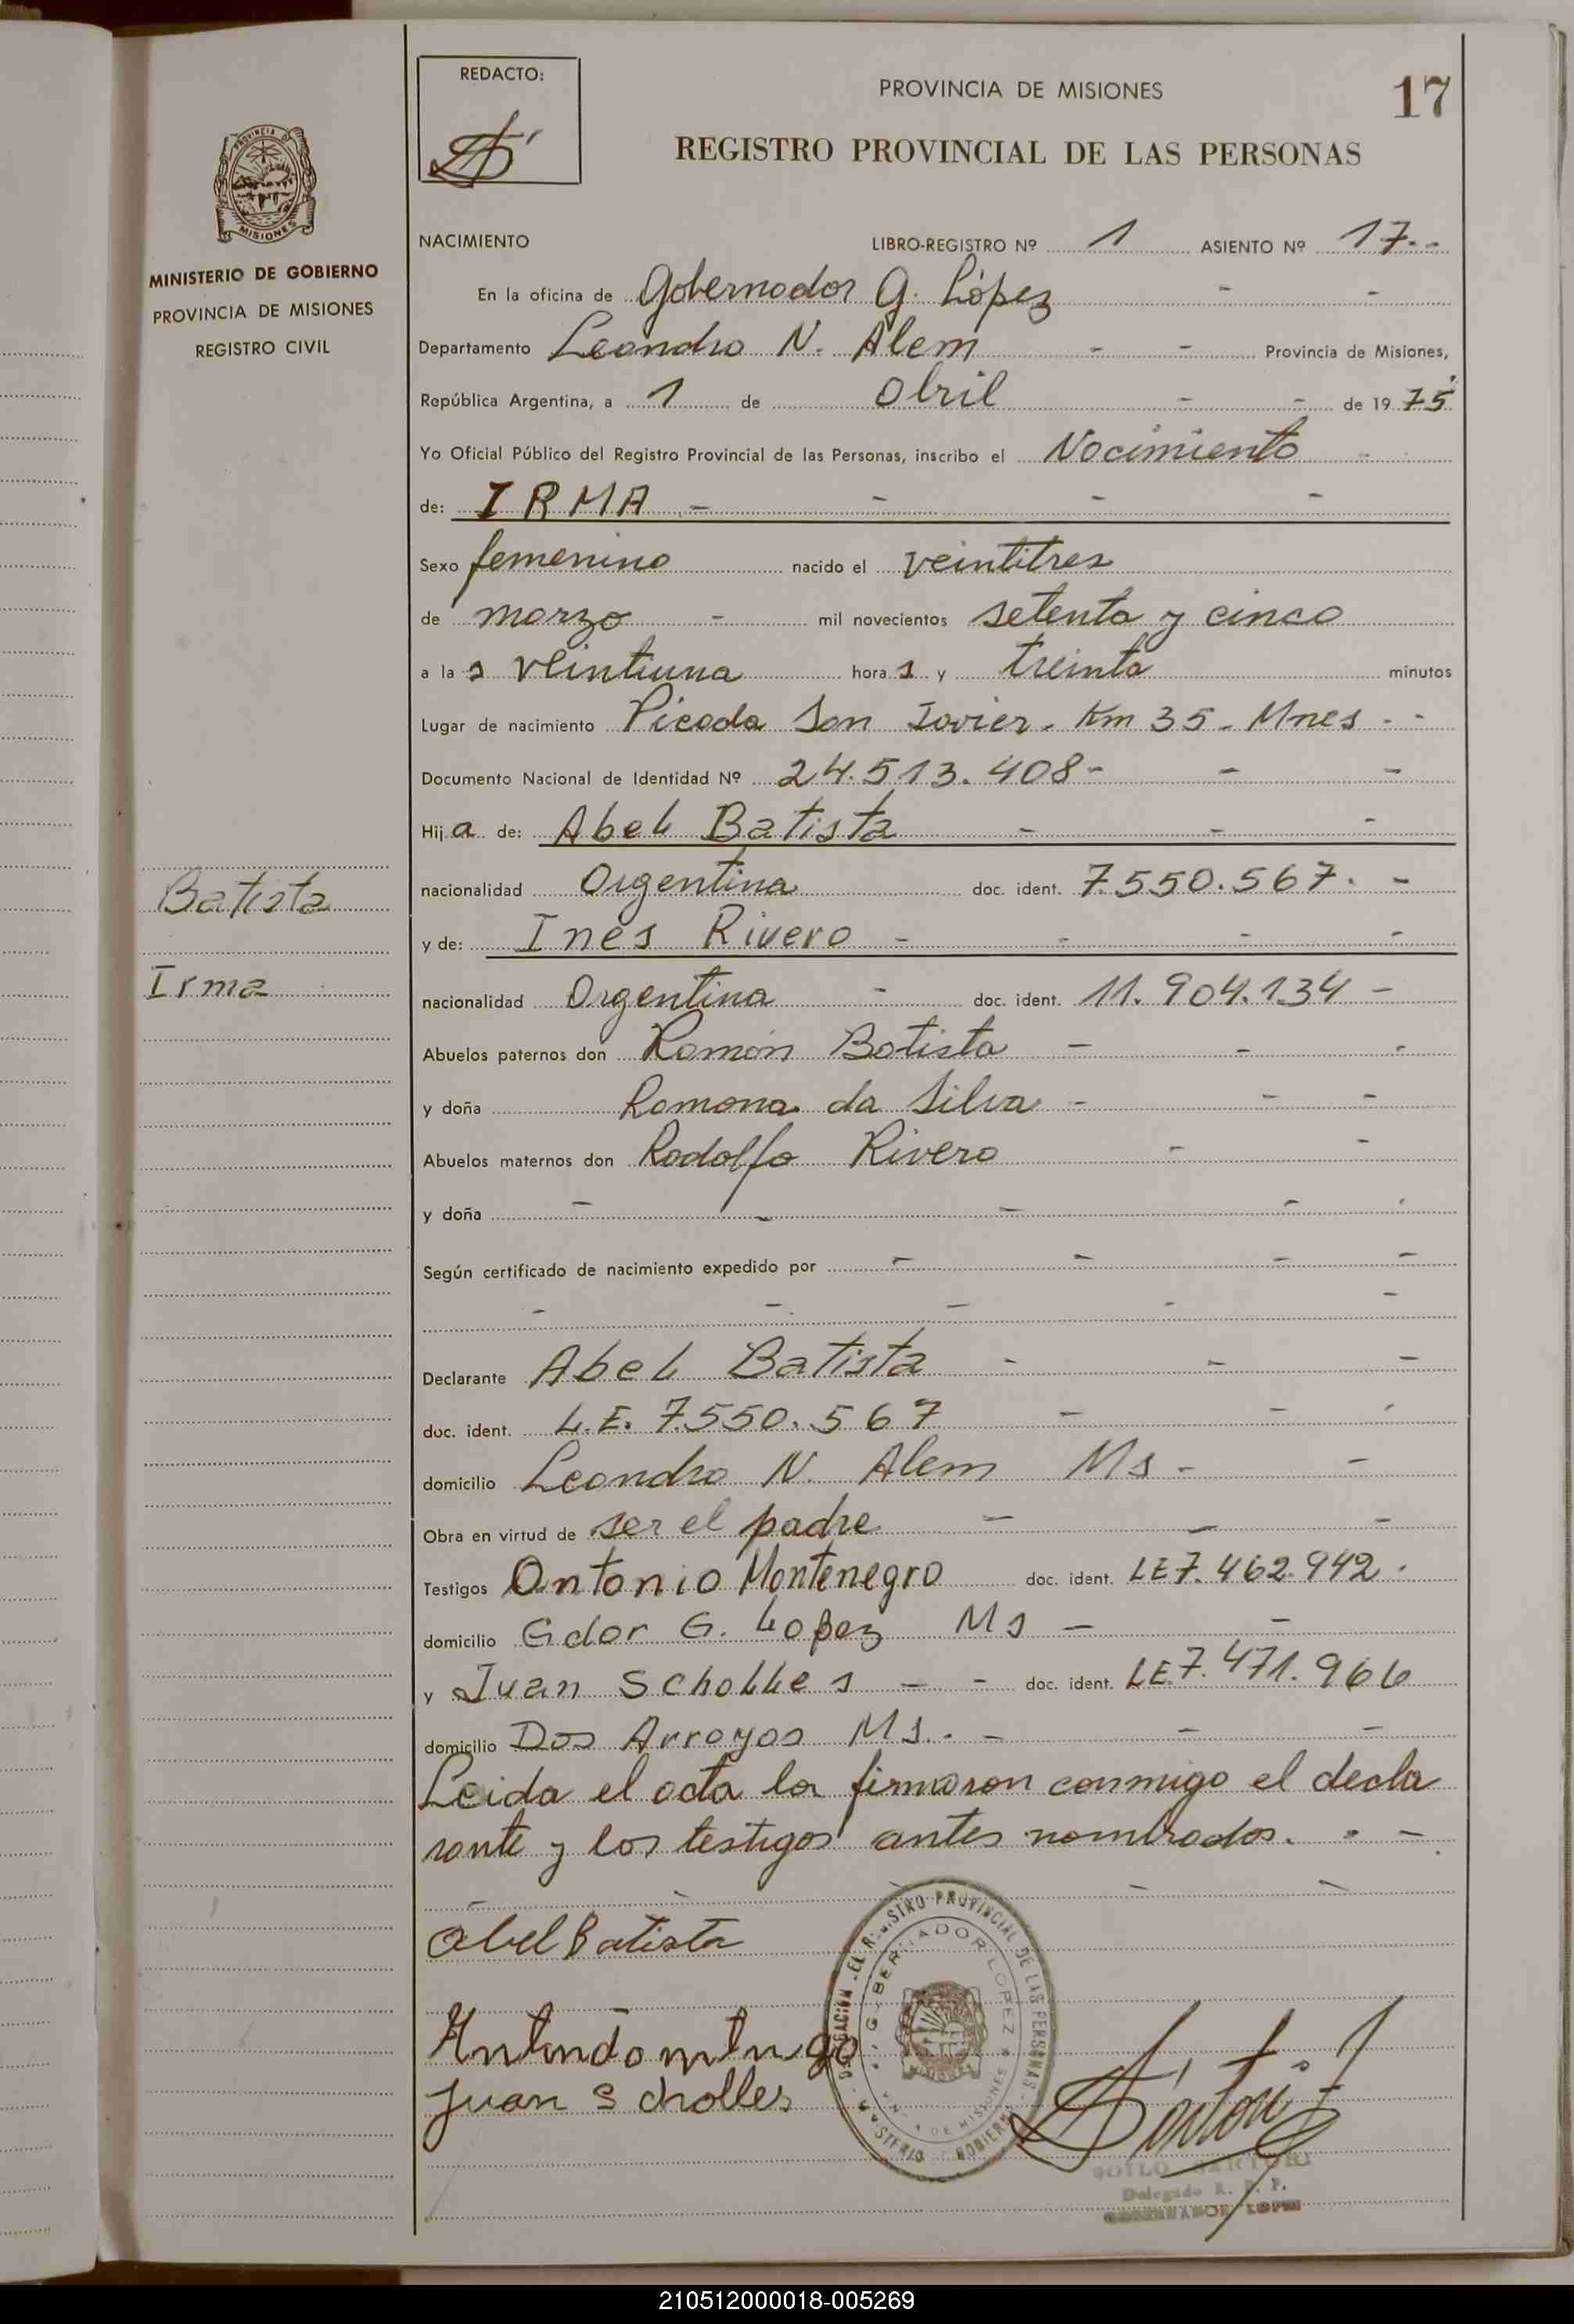 REDACTO:
PROVINCIA DE MISIONES
17
REGISTRO PROVINCIAL DE LAS PERSONAS
PROVINCIA DE
MISIONES
MINISTERIO DE GOBIERNO
PROVINCIA DE MISIONES
REGISTRO CIVIL
NACIMIENTO LIBRO-REGISTRO Nº 1 ASIENTO Nº 17.-
En la oficina de Gobernador G. López - -
Departamento Leandro N. Alem - - Provincia de Misiones,
República Argentina, a 1 de abril - - de 1975
Yo Oficial Público del Registro Provincial de las Personas, inscribo el Nacimiento -
de: IRMA - - - -
Sexo femenino nacido el veintitres
de marzo - mil novecientos setenta y cinco
a las veintiuna horas y treinta minutos
Lugar de nacimiento Picada San Javier - Km 35 - Mnes - -
Documento Nacional de Identidad Nº 24.513.408- - -
Hija de: Abel Batista - - -
nacionalidad Argentina doc. ident. 7.550.567. -
y de: Ines Rivero - - - -
nacionalidad Argentina - doc. ident. 11.904.134 -
Batista
Irma
Abuelos paternos don Ramón Batista - - -
y doña Ramona da Silva - - -
Abuelos maternos don Rodolfo Rivero - -
y doña - - - - -
Según certificado de nacimiento expedido por - - - -
- - - - -
Declarante Abel Batista - - -
doc. ident. L.E. 7.550.567 - - -
domicilio Leandro N. Alem Ms - -
Obra en virtud de ser el padre - - -
Testigos Antonio Montenegro doc. ident. LE 7.462.942.
domicilio Gdor G. Lopez Ms - -
y Juan Scholles - - doc. ident. LE 7.471.966
domicilio Dos Arroyos Ms. - - -
Leida el acta la firmaron conmigo el decla
rante y los testigos antes nombrados. - -
Abel Batista
Juan Scholles
DELEGACION DEL REGISTRO PROVINCIAL DE LAS PERSONAS
GOBERNADOR LOPEZ
MINISTERIO DE GOBIERNO
SARTORI
Delegado R. P. P.
GOBERNADOR LOPEZ
210512000018-005269